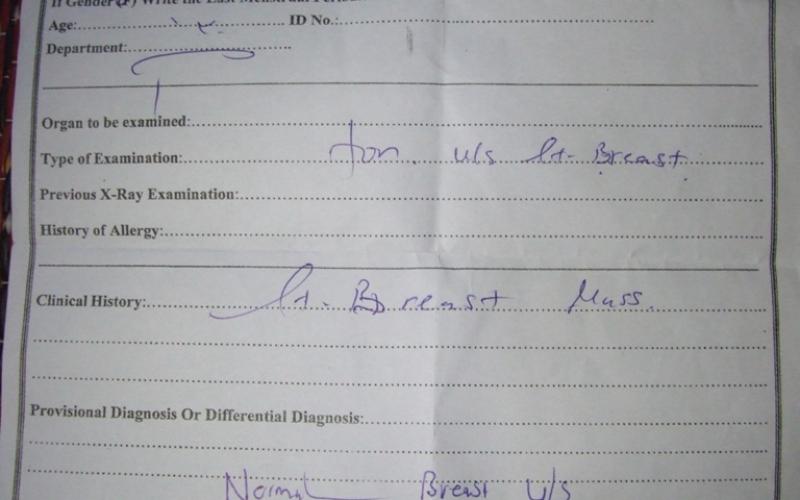 If Gender (F) Write the Last Menstrual Period
Age: ID No.:
Department:
Organ to be examined:
Type of Examination: for. u/s lt. Breast
Previous X-Ray Examination:
History of Allergy:
Clinical History: lt. Breast Mass.
Provisional Diagnosis Or Differential Diagnosis:
Normal Breast u/s